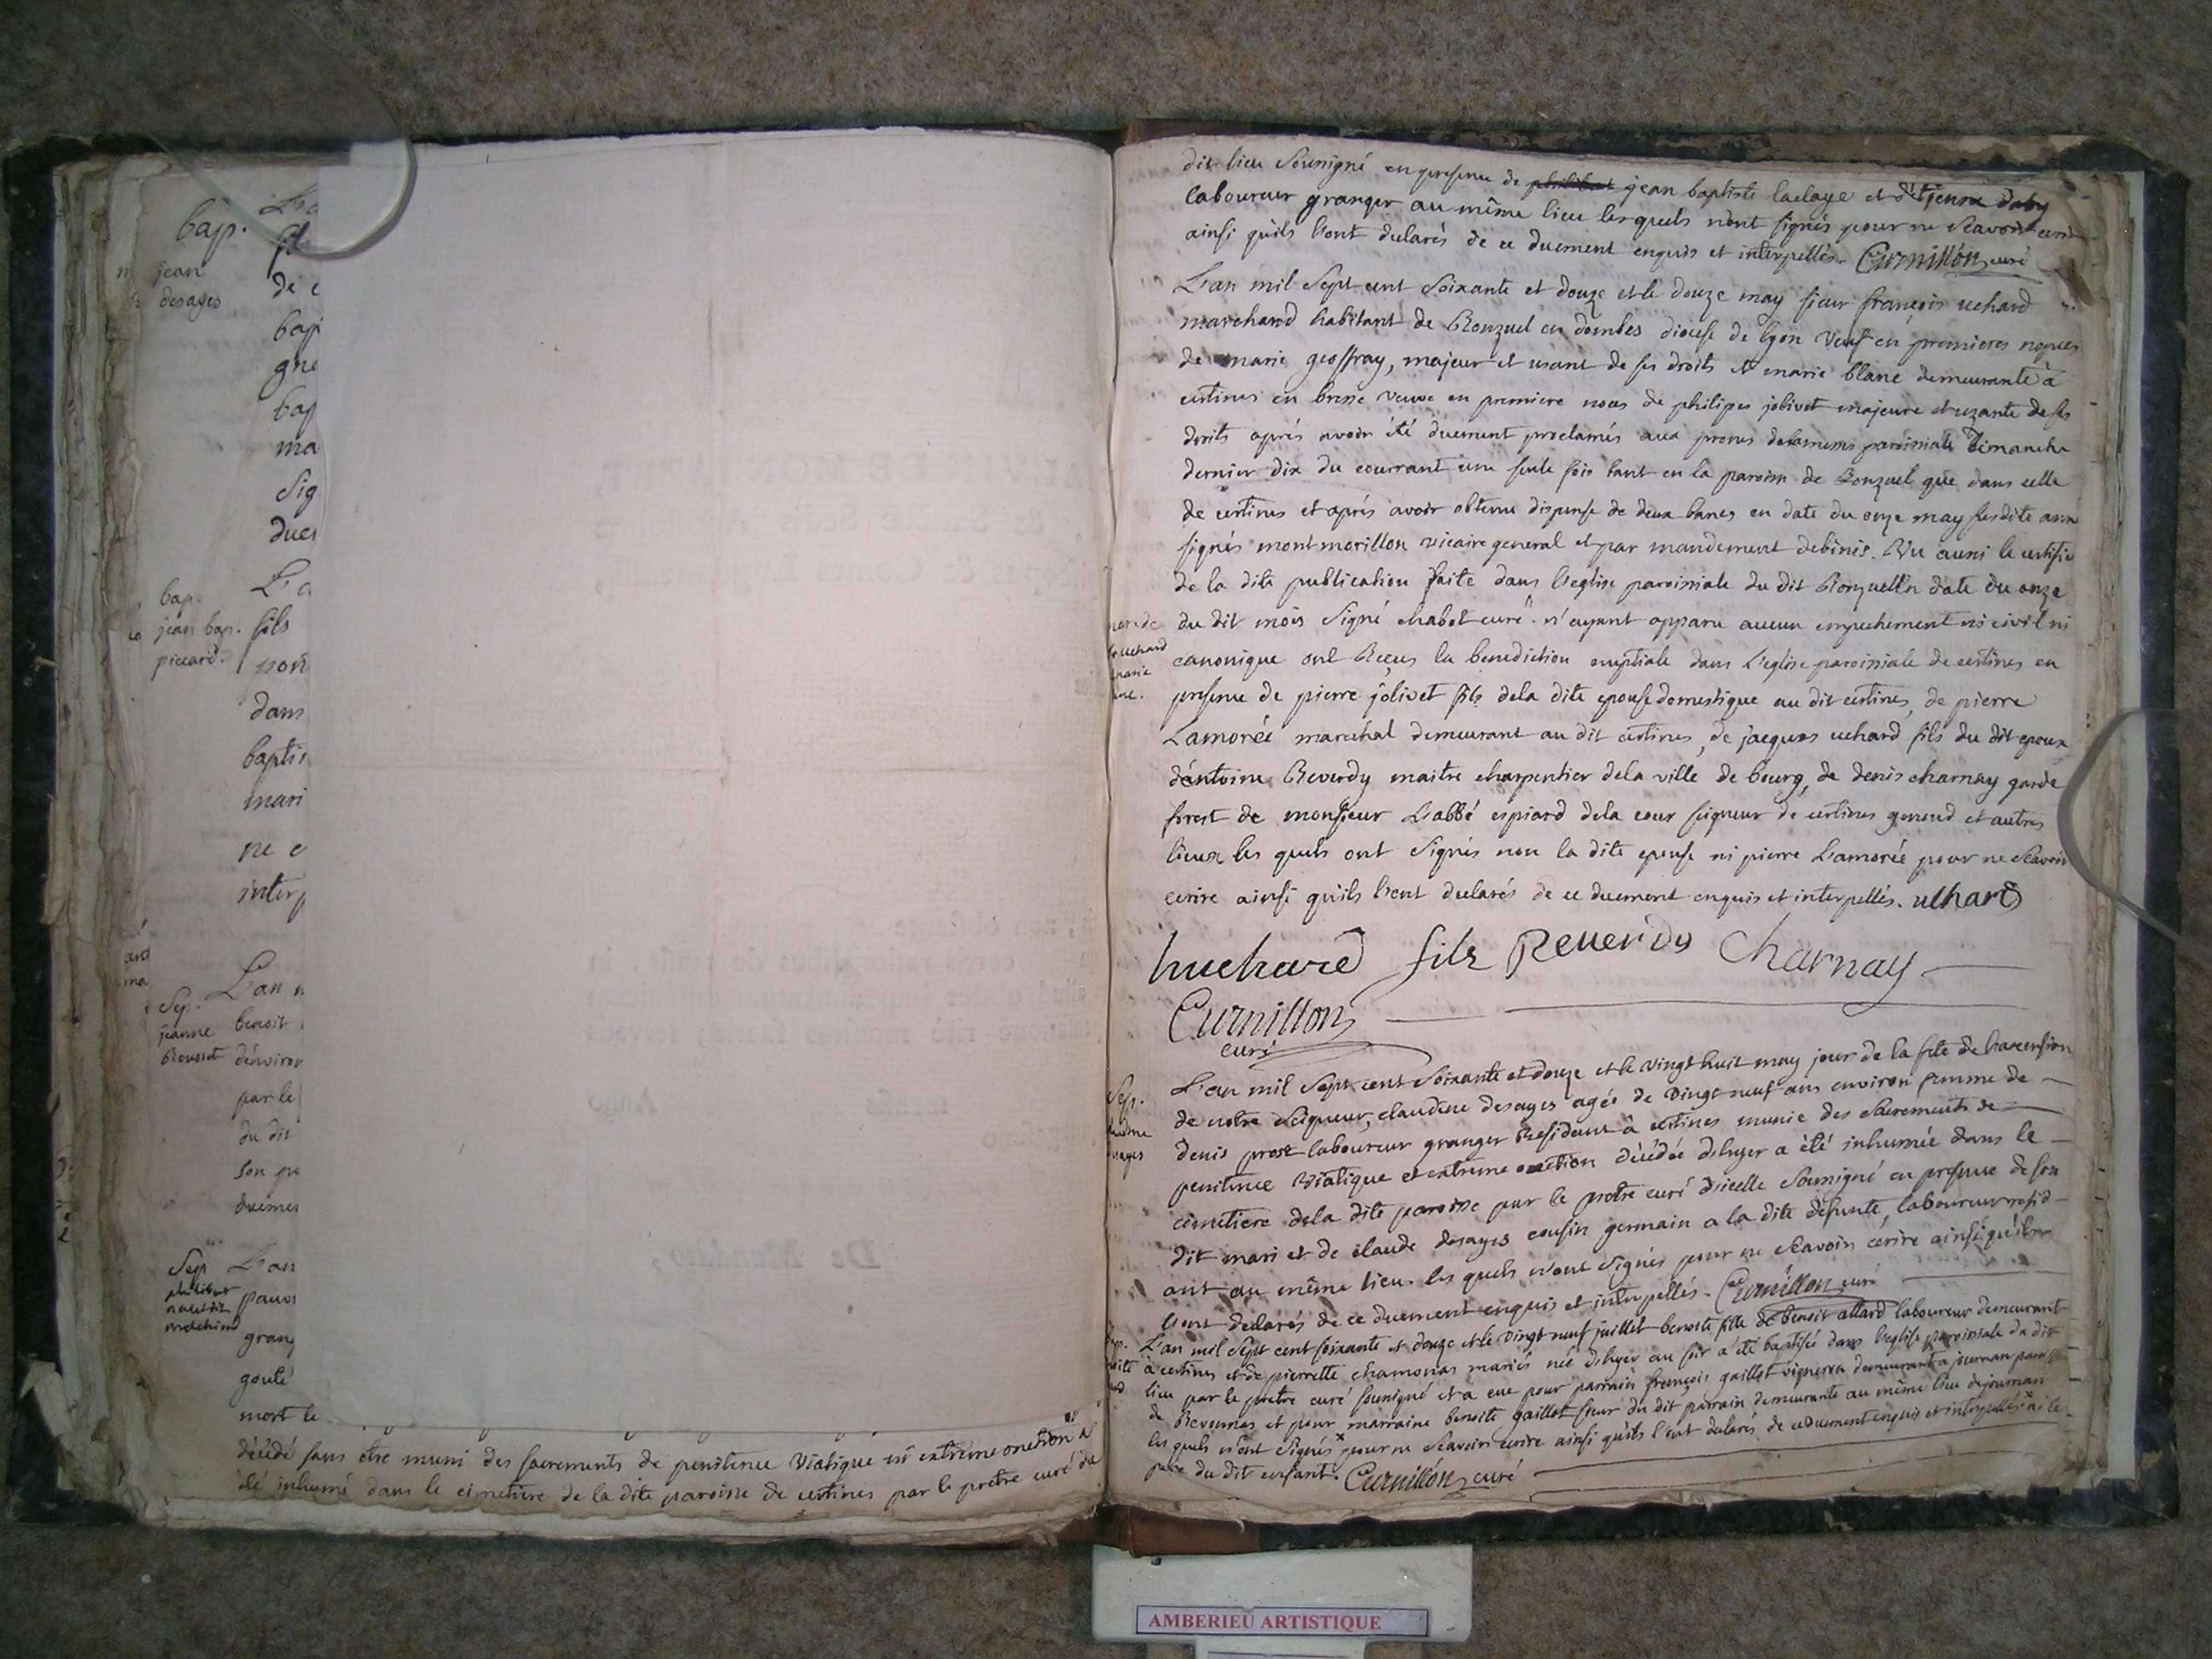 bap.
jean
desages
L'a
de c
bap
gne
bap
ma
sig
duem
bap.
jean bap.
piccard.
L'a
fils
nom
dans
baptis
mari
ne c
interp
Sep.
jeanne
Rousset
L'an m
benoit
d'environ
par le
du dit
son pe
duemen
Sep
L'an
pauv
grang
goulé
mort le
décédé sans etre muni des sacrements de penitence viatique ni extreme onction a
été inhumé dans le cimetiere de la dite paroisse de certines par le prètre curé du
dit lieu soussigné en presence de jean baptiste laclaye et d'etienne daby
laboureur granger au même lieu lesquels n'ont signés pour ne sçavoir ecrire
ainsi qu'ils l'ont declarés de ce duement enquis et interpellés. Curnillon curé
L'an mil sept cent soixante et douze et le douze may sieur françois uchard
marchand habitant de Ronzuel en dombes diocese de lyon veuf en premieres nopces
de marie geoffray, majeur et usant de ses droits et marie blanc demeurante à
certines en bresse veuve en premiere noces de philipes jolivet majeure et uzante de ses
droits aprés avoir été duement proclamés aux prones de la messe paroissiale dimanche
dernier dix du courrant une seule fois tant en la paroisse de Ronzuel que dans celle
de certines et aprés avoir obtenu dispense de deux bancs en date du onze may susdite anne
signés montmorillon vicaire general et par mandement debinis. Vu aussi le certifica
de la dite publication faite dans l'eglise paroissiale du dit Ronzuel en date du onze
du dit mois signé chabot curé. n'ayant apparu aucun empechement ni civil ni
canonique ont Reçus la benediction nuptiale dans l'eglise paroissiale de certines en
presence de pierre jolivet fils de la dite epouse domestique au dit certines, de pierre
Lamorée maréchal demeurant au dit certines, de jacques uchard fils du dit epoux
d'antoine Reverdy maitre charpentier de la ville de bourg, de denis charnay garde
forest de monsieur L'abbé espiard de la cour seigneur de certines genoud et autres
lieux les quels ont signés non la dite epouse ni pierre Lamorée pour ne sçavoir
ecrire ainsi qu'ils l'ont declarés de ce duement enquis et interpellés. uchard
huchard fils Reuerdy Charnay
Curnillon
curé
Sep.
L'an mil sept cent soixante et douze et le vingt huit may jour de la fete de l'ascension
de notre seigneur, claudine desages agée de vingt neuf ans environ femme de
denis prost laboureur granger Residant à certines munie des sacrements de
penitence viatique et extreme onction décédée d'hyer a été inhumée dans le
cimetiere de la dite paroisse par le pretre curé d'icelle soussigné en presence de son
dit mari et de claude desages cousin germain a la dite defunte, laboureur resid
ant au même lieu. les quels n'ont signés pour ne sçavoir ecrire ainsi qu'ils
l'ont declarés de ce duement enquis et interpellés. Curnillon curé
L'an mil sept cent soixante et douze et le vingt neuf juillet benoite fille de benoit allard laboureur demeurant
à certines et de pierrette chamonas mariés née d'hyer au soir a été baptisée dans l'eglise paroissiale du dit
lieu par le pretre curé soussigné et a eue pour parrain françois gaillot vigneron demeurant a journan paroisse
de Revonnas et pour marraine benoite gaillot sœur du dit parrain demeurante au même lieu de journan
les quels n'ont signés x pour ne sçavoir ecrire ainsi qu'ils l'ont declarés de ce duement enquis et interpellés x ni le
pere du dit enfant. Curnillon curé
AMBERIEU ARTISTIQUE